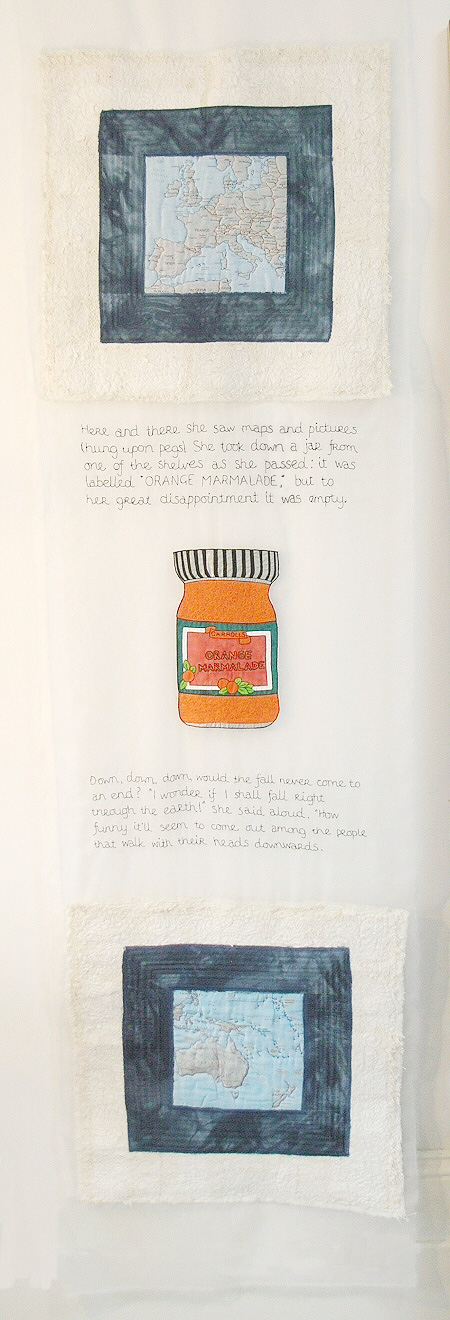 Here and there she saw maps and pictures
(hung upon pegs). She took down a jar from
one of the shelves as she passed: it was
labelled "ORANGE MARMALADE," but to
her great disappointment it was empty.
CARROLLS
ORANGE
MARMALADE
Down, down, down, would the fall never come to
an end? "I wonder if I shall fall right
through the earth!" she said aloud. "How
funny it'll seem to come out among the people
that walk with their heads downwards.